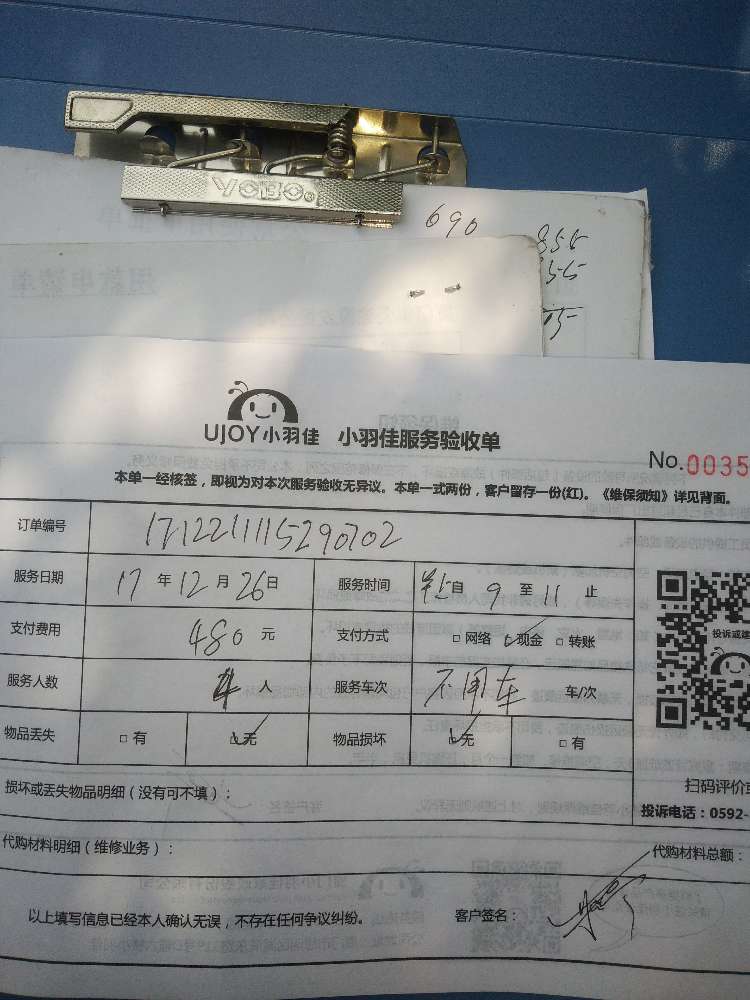 690
855
UJOY小羽佳 小羽佳服务验收单
No.0035
本单一经核签，即视为对本次服务验收无异议。本单一式两份，客户留存一份(红)。《维保须知》详见背面。
订单编号 171221115290702
服务日期 17年12月26日 服务时间 早上自9至11止
支付费用 480元 支付方式 □网络 ☑现金 □转账
投诉或建
服务人数 4人 服务车次 不用车 车/次
物品丢失 □有 ☑无 物品损坏 ☑无 □有
损坏或丢失物品明细（没有可不填）：
扫码评价或
投诉电话：0592-
代购材料明细（维修业务）：
代购材料总额：
以上填写信息已经本人确认无误，不存在任何争议纠纷。 客户签名：